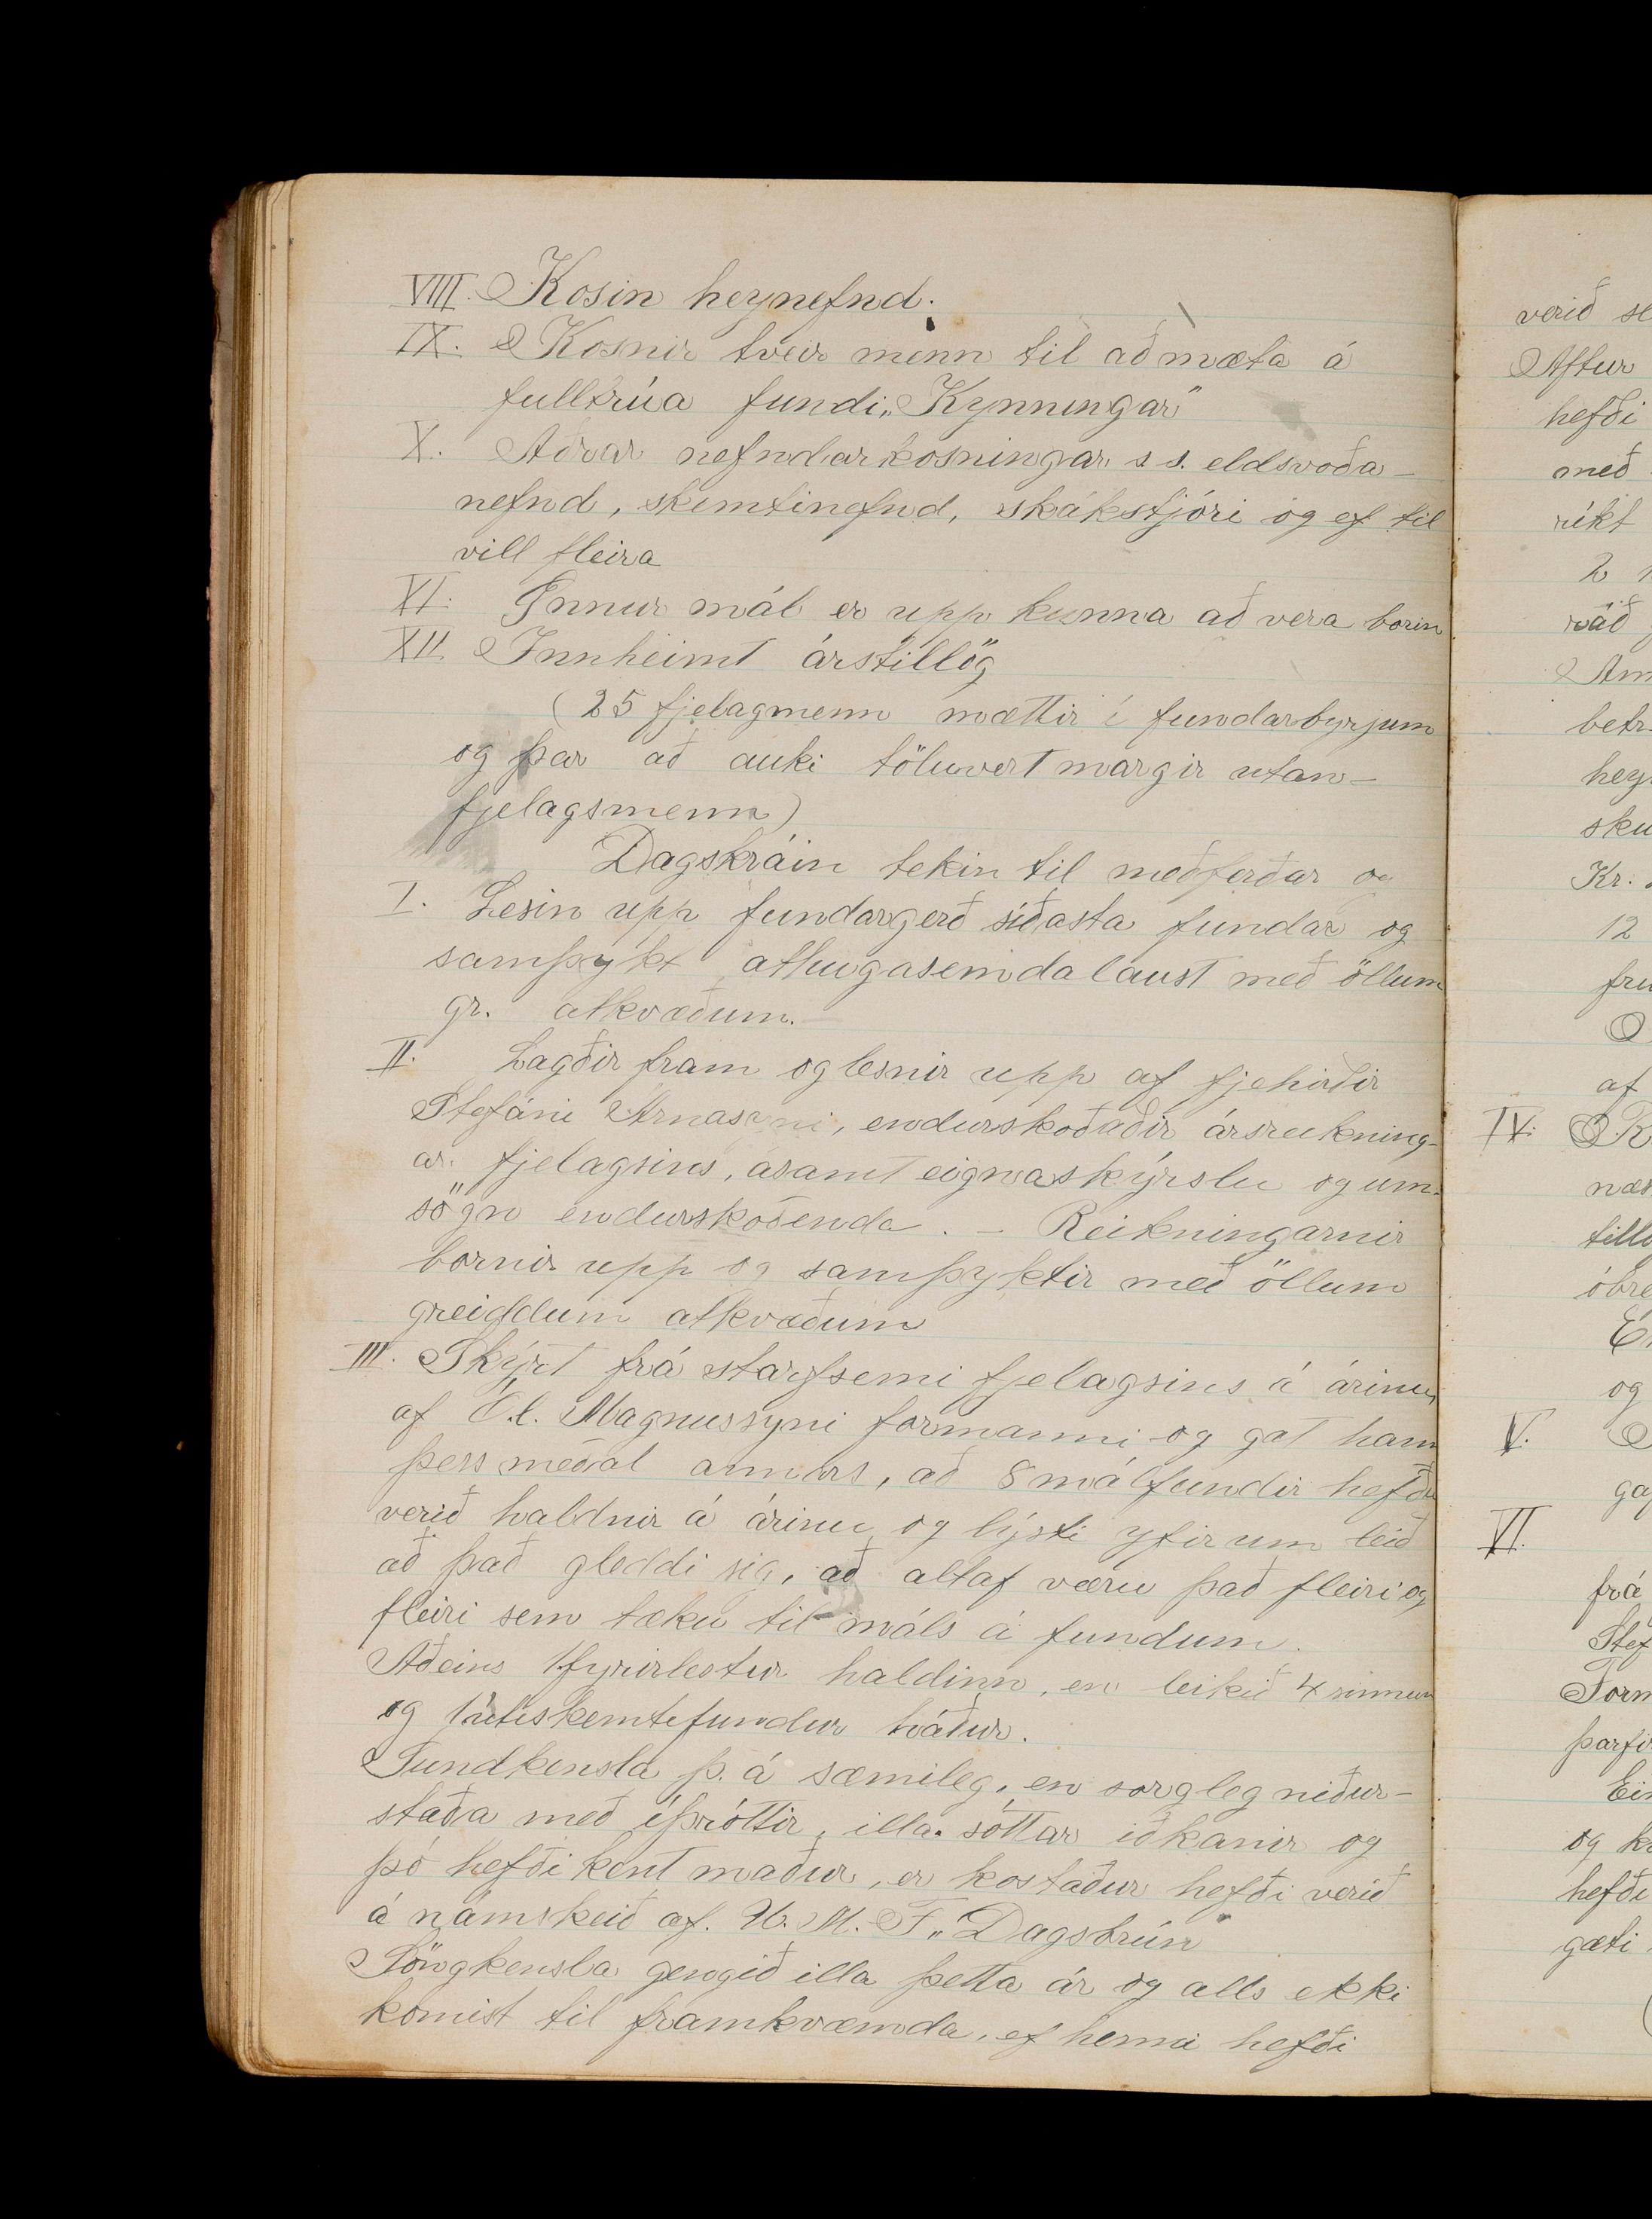 VIII. Kosin heynefnd.
IX. Kosnir tveir menn til að mæta á
fulltrúa fundi „Kynningar"
X. Aðrar nefndarkosningar s s. eldsvoða-
nefnd, skemtinefnd, skákstjóri og ef til
vill fleira
XI. Önnur mál er upp kunna að vera borin
XII. Innheimt árstillög
(25 fjelagmenn mættir í fundarbyrjum
og þar að auki töluvert margir utan-
fjelagsmenn)
Dagskráin tekin til meðferðar og
I. Lesin upp fundargerð síðasta fundar og
samþykt athugasemdalaust með öllum
gr. atkvæðum.-
II. Lagðir fram og lesnir upp af fjehirðir
Stefáni Árnasyni, endurskoðaðir ársreikning-
ar fjelagsins, ásamt eignaskýrslu og um-
sögn endurskoðenda. - Reikningarnir
bornir upp og samþyktir með öllum
greiddum atkvæðum
III. Skýrt frá starfsemi fjelagsins á árinu,
af Ól. Magnussyni formanni og gat hann
þess meðal annars, að 8 málfundir hefðu
verið haldnir á árinu og lýsti yfir um leið
að það gleddi sig, að altaf væru það fleiri og
fleiri sem tæku til máls á fundum.
Aðeins 1 fyrirlestur haldinn, en leikið 4 sinnum
og 1 útiskemtifundur háður.
Sundkensla þ. á sæmileg, en sorgleg niður-
staða með íþróttir, illa sóttar iðkanir og
þó hefði kent maður, er kostaður hefði verið
á námskeið af U. M. F. „Dagsbrún"
Söngkensla gengið illa þetta ár og alls ekki
komist til framkvæmda, ef henni hefði
verið
Aftur
hefði
með
ríkt
2
ráð
betr
hey
sku
Kr.
12
fru
af
IV.
næs
tillö
óbre
og
V.
VI.
frá
Stef
Form
þarfi
Ein
og
hefði
gæti